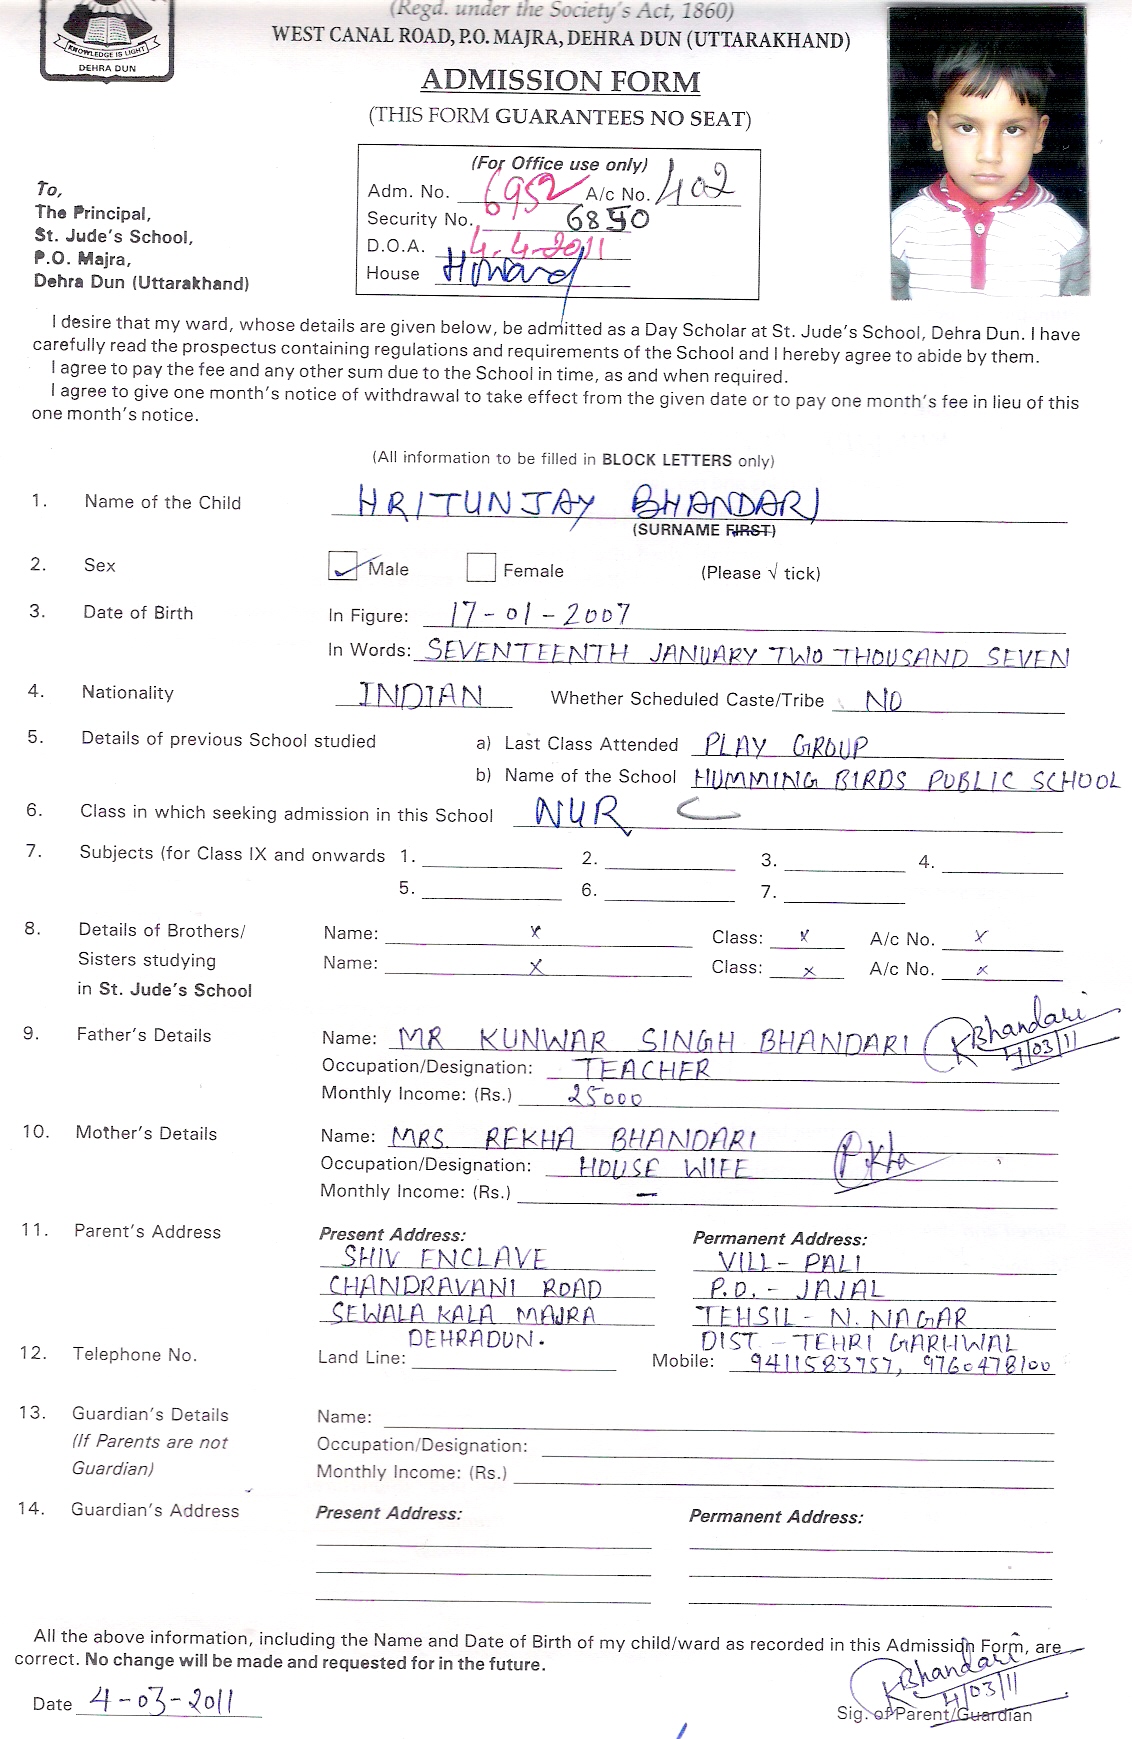 (Regd. under the Society's Act, 1860)
WEST CANAL ROAD, P.O. MAJRA, DEHRA DUN (UTTARAKHAND)
KNOWLEDGE IS LIGHT
DEHRA DUN
ADMISSION FORM
(THIS FORM GUARANTEES NO SEAT)
(For Office use only)
Adm. No. 6952 A/c No. 402
Security No. 6850
D.O.A. 4.4.2011
House Howard
To,
The Principal,
St. Jude's School,
P.O. Majra,
Dehra Dun (Uttarakhand)
I desire that my ward, whose details are given below, be admitted as a Day Scholar at St. Jude's School, Dehra Dun. I have
carefully read the prospectus containing regulations and requirements of the School and I hereby agree to abide by them.
I agree to pay the fee and any other sum due to the School in time, as and when required.
I agree to give one month's notice of withdrawal to take effect from the given date or to pay one month's fee in lieu of this
one month's notice.
(All information to be filled in BLOCK LETTERS only)
1. Name of the Child HRITUNJAY BHANDARI
(SURNAME FIRST)
2. Sex Male Female (Please √ tick)
3. Date of Birth In Figure: 17-01-2007
In Words: SEVENTEENTH JANUARY TWO THOUSAND SEVEN
4. Nationality INDIAN Whether Scheduled Caste/Tribe NO
5. Details of previous School studied a) Last Class Attended PLAY GROUP
b) Name of the School HUMMING BIRDS PUBLIC SCHOOL
6. Class in which seeking admission in this School NUR C
7. Subjects (for Class IX and onwards 1. 2. 3. 4.
5. 6. 7.
8. Details of Brothers/ Name: x Class: x A/c No. x
Sisters studying Name: x Class: x A/c No. x
in St. Jude's School
9. Father's Details Name: MR KUNWAR SINGH BHANDARI KBhandari
4/03/11
Occupation/Designation: TEACHER
Monthly Income: (Rs.) 25000
10. Mother's Details Name: MRS. REKHA BHANDARI
Occupation/Designation: HOUSE WIFE
Monthly Income: (Rs.) —
11. Parent's Address Present Address: Permanent Address:
SHIV ENCLAVE VILL- PALI
CHANDRAVANI ROAD P.O. - JAJAL
SEWALA KALA MAJRA TEHSIL - N. NAGAR
DEHRADUN. DIST - TEHRI GARHWAL
12. Telephone No. Land Line: Mobile: 9411583757, 9760478100
13. Guardian's Details Name:
(If Parents are not Occupation/Designation:
Guardian) Monthly Income: (Rs.)
14. Guardian's Address Present Address: Permanent Address:
All the above information, including the Name and Date of Birth of my child/ward as recorded in this Admission Form, are
correct. No change will be made and requested for in the future.
KBhandari
4/03/11
Date 4-03-2011 Sig. of Parent/Guardian